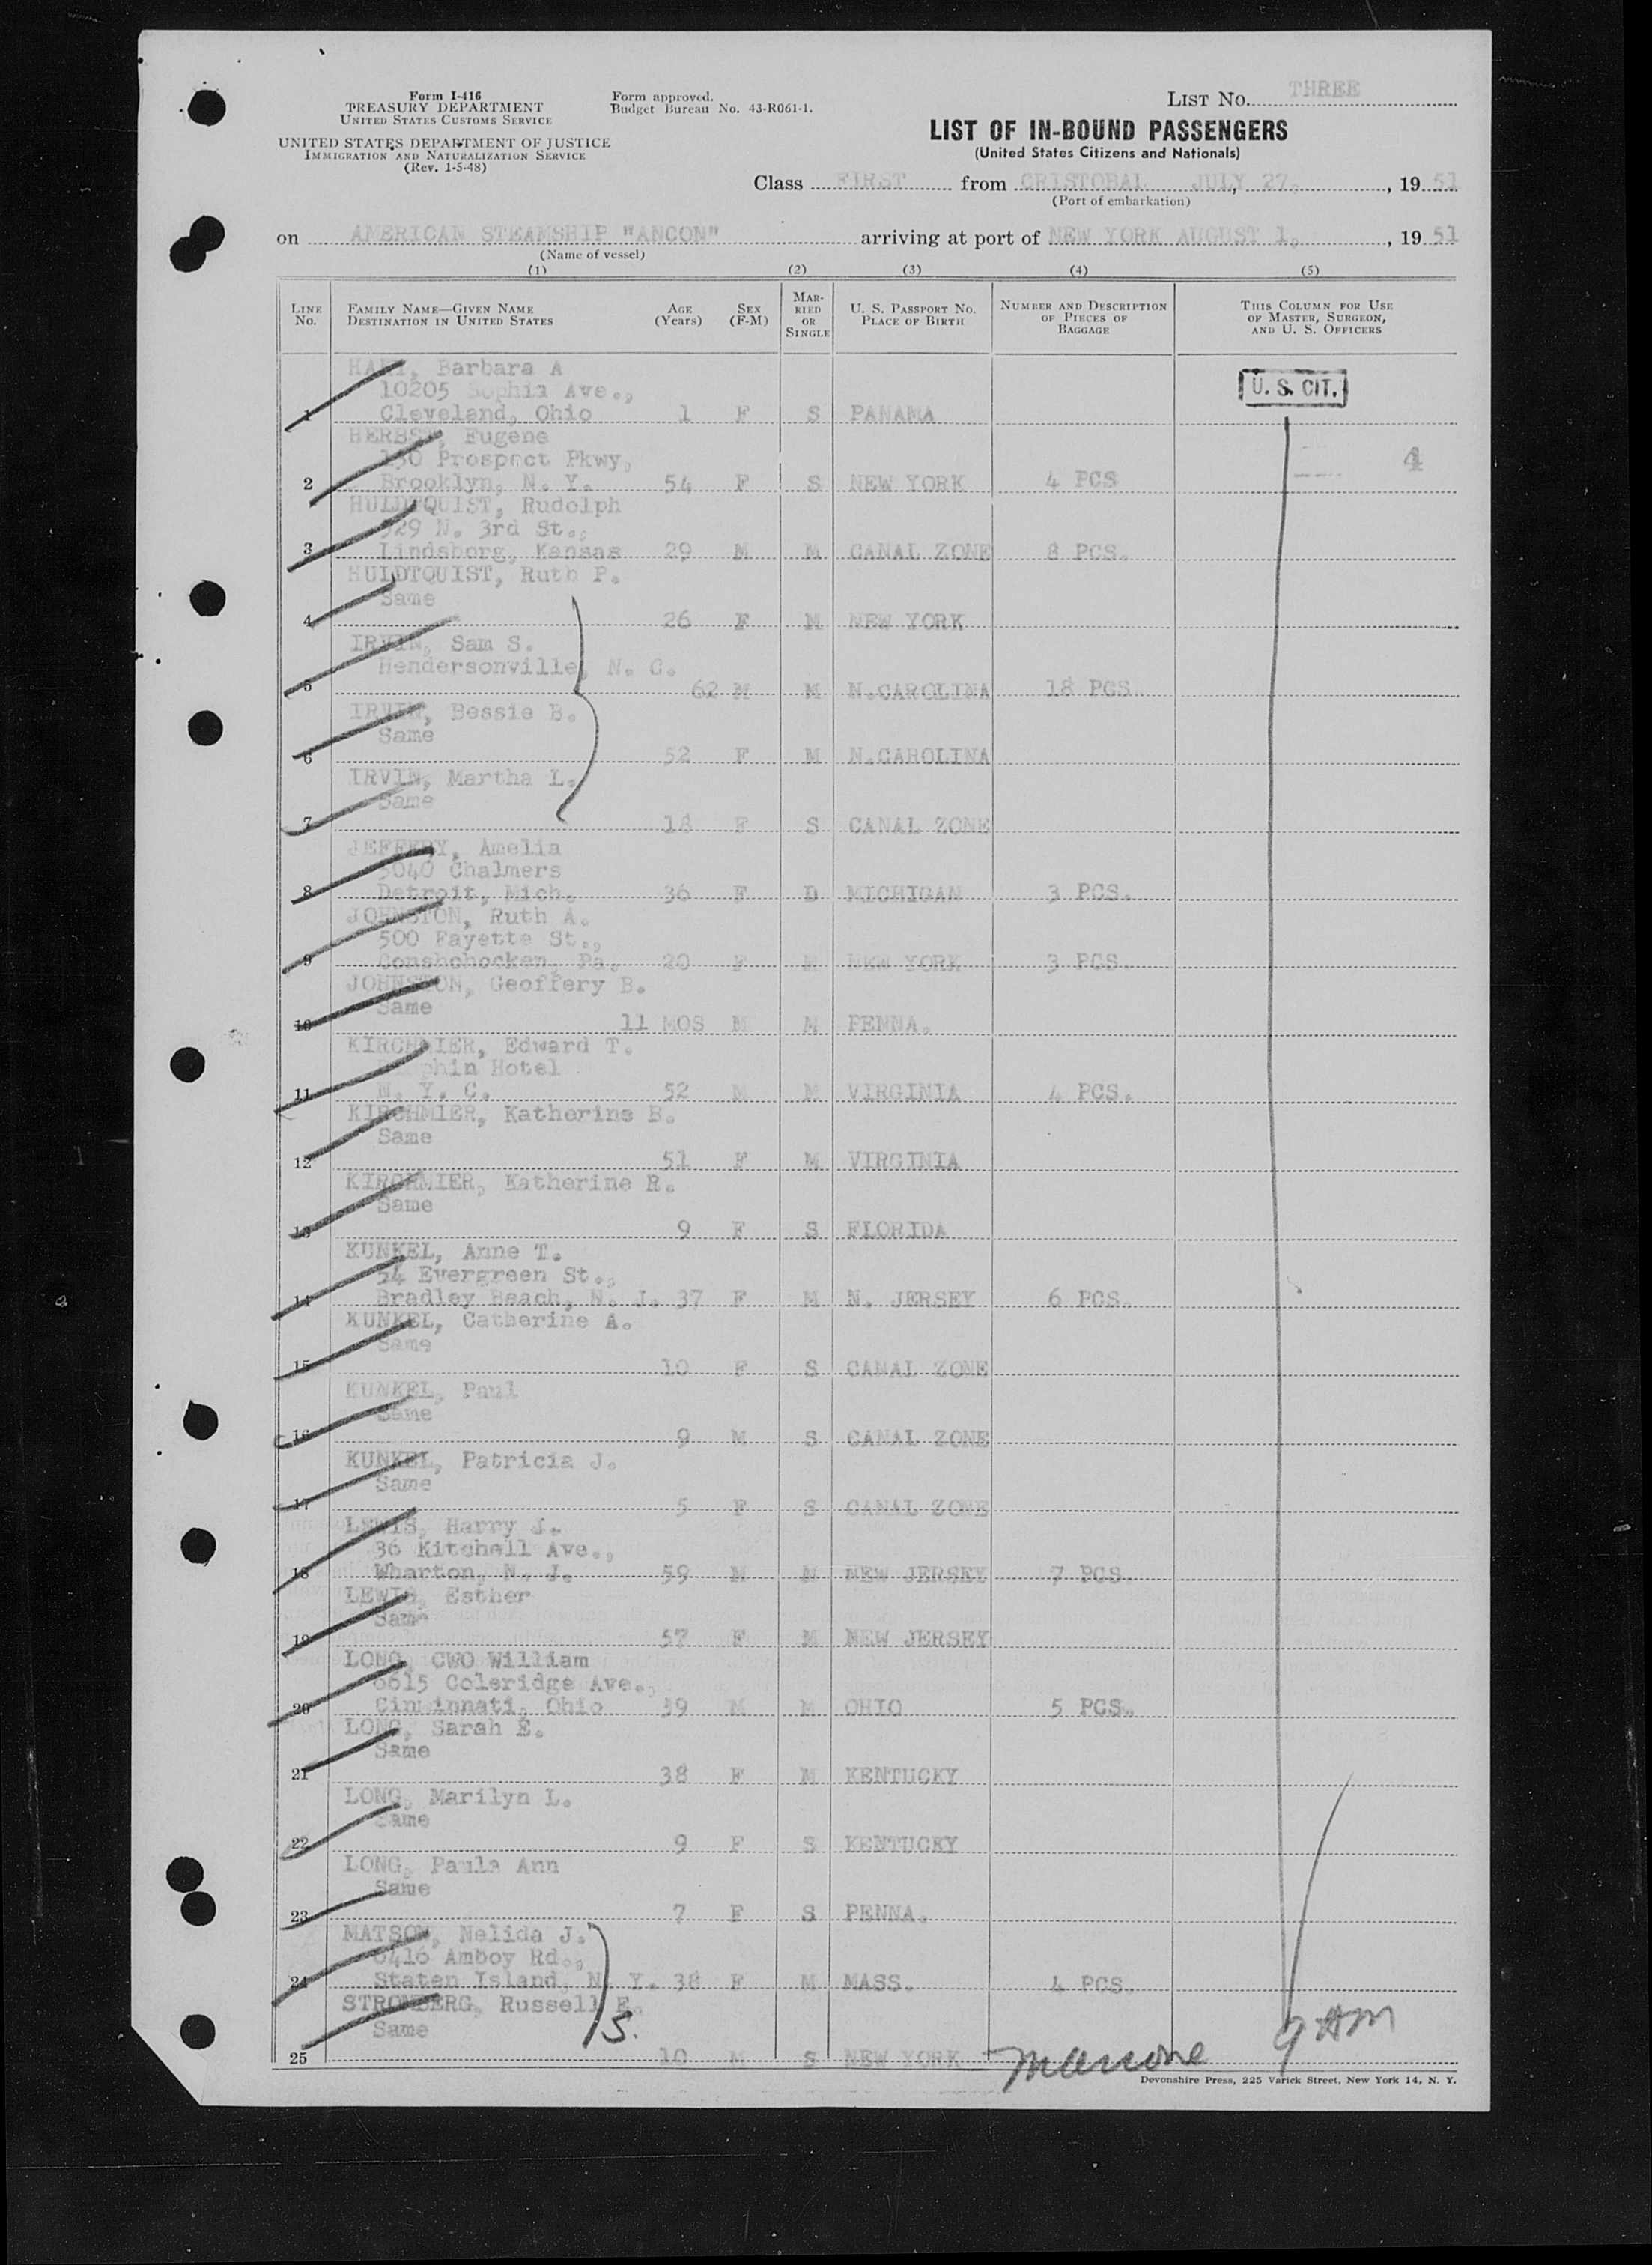 Form I-416
TREASURY DEPARTMENT
UNITED STATES CUSTOMS SERVICE
UNITED STATES DEPARTMENT OF JUSTICE
IMMIGRATION AND NATURALIZATION SERVICE
(Rev. 1-5-48)
Form approved.
Budget Bureau No. 43-R061-1.
LIST NO. THREE
LIST OF IN-BOUND PASSENGERS
(United States Citizens and Nationals)
Class FIRST from CRISTOBAL JULY 27, , 19 51
(Port of embarkation)
on AMERICAN STEAMSHIP "ANCON" arriving at port of NEW YORK AUGUST 1, , 19 51
(Name of vessel)
(1) (2) (3) (4) (5)
LINE NO.
FAMILY NAME—GIVEN NAME
DESTINATION IN UNITED STATES
AGE (Years)
SEX (F-M)
MARRIED OR SINGLE
U. S. PASSPORT NO.
PLACE OF BIRTH
NUMBER AND DESCRIPTION OF PIECES OF BAGGAGE
THIS COLUMN FOR USE OF MASTER, SURGEON, AND U. S. OFFICERS
Barbara A
10205 Sophia Ave.,
1 Cleveland, Ohio 1 F S PANAMA
U. S. CIT.
HERBST, Eugene
130 Prospect Pkwy,
2 Brooklyn, N. Y. 54 F S NEW YORK 4 PCS
4
HULDTQUIST, Rudolph
529 N. 3rd St.,
3 Lindsborg, Kansas 29 M M CANAL ZONE 8 PCS.
HULDTQUIST, Ruth P.
Same
4 26 F M NEW YORK
IRVIN, Sam S.
Hendersonville, N. C.
5 62 M M N.CAROLINA 18 PCS
IRVIN, Bessie B.
Same
6 52 F M N.CAROLINA
IRVIN, Martha L.
Same
7 18 F S CANAL ZONE
JEFFERY, Amelia
5040 Chalmers
8 Detroit, Mich. 36 F D MICHIGAN 3 PCS.
JOHNSTON, Ruth A.
500 Fayette St.,
9 Conshohocken, Pa. 20 F M NEW YORK 3 PCS.
JOHNSTON, Geoffery B.
Same
10 11 MOS M PENNA.
KIRCHMIER, Edward T.
Hotel
11 N. Y. C. 52 M M VIRGINIA 4 PCS.
KIRCHMIER, Katherine B.
Same
12 51 F M VIRGINIA
KIRCHMIER, Katherine R.
Same
13 9 F S FLORIDA
KUNKEL, Anne T.
54 Evergreen St.,
14 Bradley Beach, N. J. 37 F M N. JERSEY 6 PCS.
KUNKEL, Catherine A.
Same
15 10 F S CANAL ZONE
KUNKEL, Paul
Same
16 9 M S CANAL ZONE
KUNKEL, Patricia J.
Same
17 5 F S CANAL ZONE
LEWIS, Harry J.
36 Kitchell Ave.,
18 Wharton, N. J. 59 M M NEW JERSEY 7 PCS.
LEWIS, Esther
Same
19 57 F M NEW JERSEY
LONG, CWO William
6615 Coleridge Ave.,
20 Cincinnati, Ohio 39 M M OHIO 5 PCS.
LONG, Sarah E.
Same
21 38 F M KENTUCKY
LONG, Marilyn L.
Same
22 9 F S KENTUCKY
LONG, Paula Ann
Same
23 7 F S PENNA.
MATSON, Nelida J.
6416 Amboy Rd.,
24 Staten Island, N. Y. 38 F M MASS. 4 PCS.
STROMBERG, Russell E.
Same
S.
25 10 M S NEW YORK
9 AM
Devonshire Press, 225 Varick Street, New York 14, N. Y.